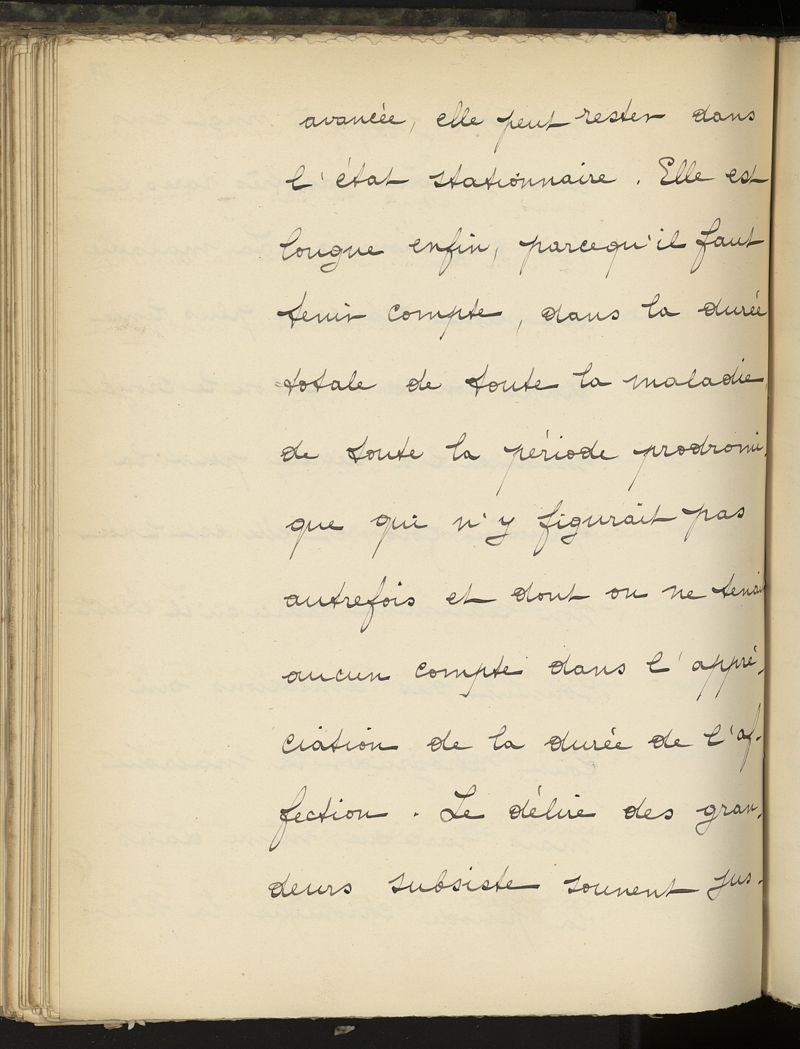 avancée, elle peut rester dans
l'état stationnaire. Elle est
longue enfin, parcequ'il faut
tenir compte, dans la durée
totale de toute la maladie
de toute la période prodromi-
que qui n'y figurait pas
autrefois et dont on ne tenait
aucun compte dans l'appré-
ciation de la durée de l'af-
fection. Le délire des gran-
deurs subsiste souvent jus-